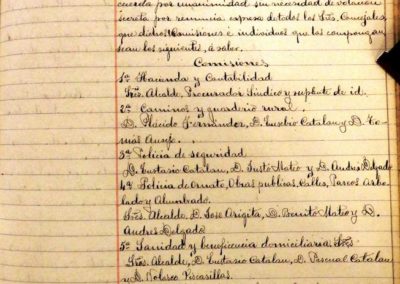 cuerda por unanimidad sin necesidad de votacion
secreta por renuncia expresa de todos los Sres. Concejales,
que dichas Comisiones é individuos que las compongan
sean los siguientes, á saber.
Comisiones
1ª Hacienda y Contabilidad
Sres. Alcalde, Procurador Síndico y suplente de id.
2ª Caminos y guarderio rural.
D. Plácido Fernández, D. Eusebio Catalan y D. To-
más Ausejo.
3ª Policia de seguridad
D. Eustasio Catalan, D. Justo Mateo y D. Andres Delgado
4ª Policia de Ornato, Obras publicas, Calles, Paseos Arbo-
lado y Alumbrado.
Sres. Alcalde, D. Jose Arigita, D. Benito Mateo y D.
Andres Delgado
5ª Sanidad y beneficencia domiciliaria.
Sres. Alcalde, D. Eustasio Catalan, D. Pascual Catalan
y D. Nolasco Piscasillas.